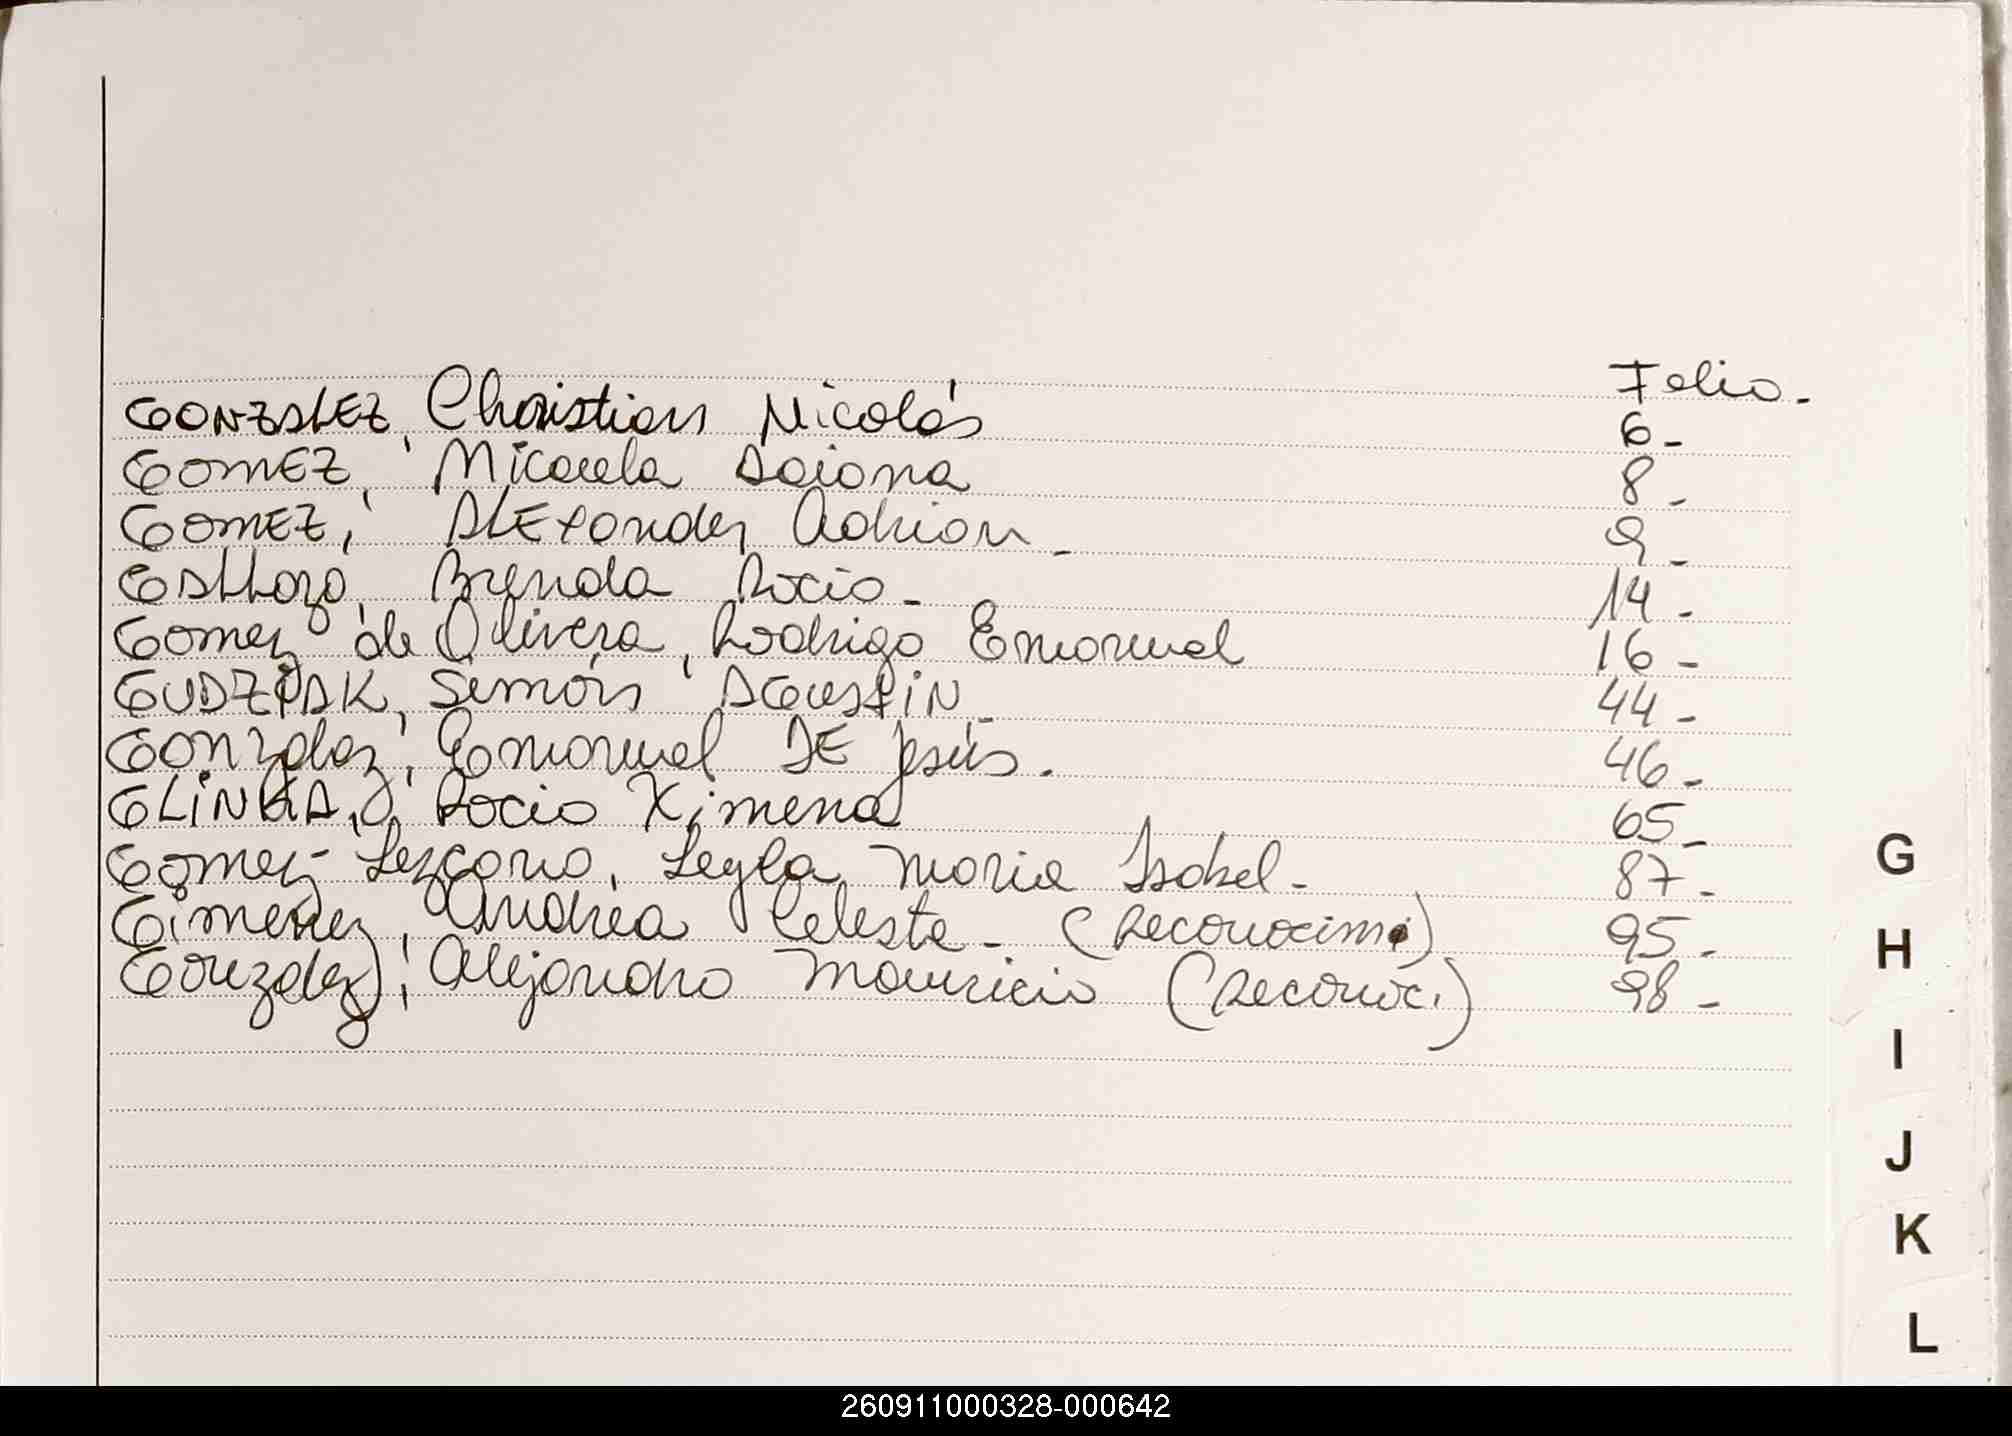 Folio.
GONZALEZ, Christian Nicolás 6-
GOMEZ, Micaela Daiana 8-
GOMEZ, ALExander Adrian- 9-
GALLozo, Brenda Rocio- 14-
Gomez de Olivera, Rodrigo Emanuel 16-
GUDZIAK, Simón AGustIN- 44-
Gonzalez, Emanuel DE Jesús. 46-
GLINKA, Rocio Ximena 65-
Gomez Lezcano, Leyla Maria Isabel- 87-
Gimenez, Andrea Celeste- (Reconocim.) 95-
Gonzalez, Alejandro Mauricio (Reconoc.) 98-
G
H
I
J
K
L
260911000328-000642